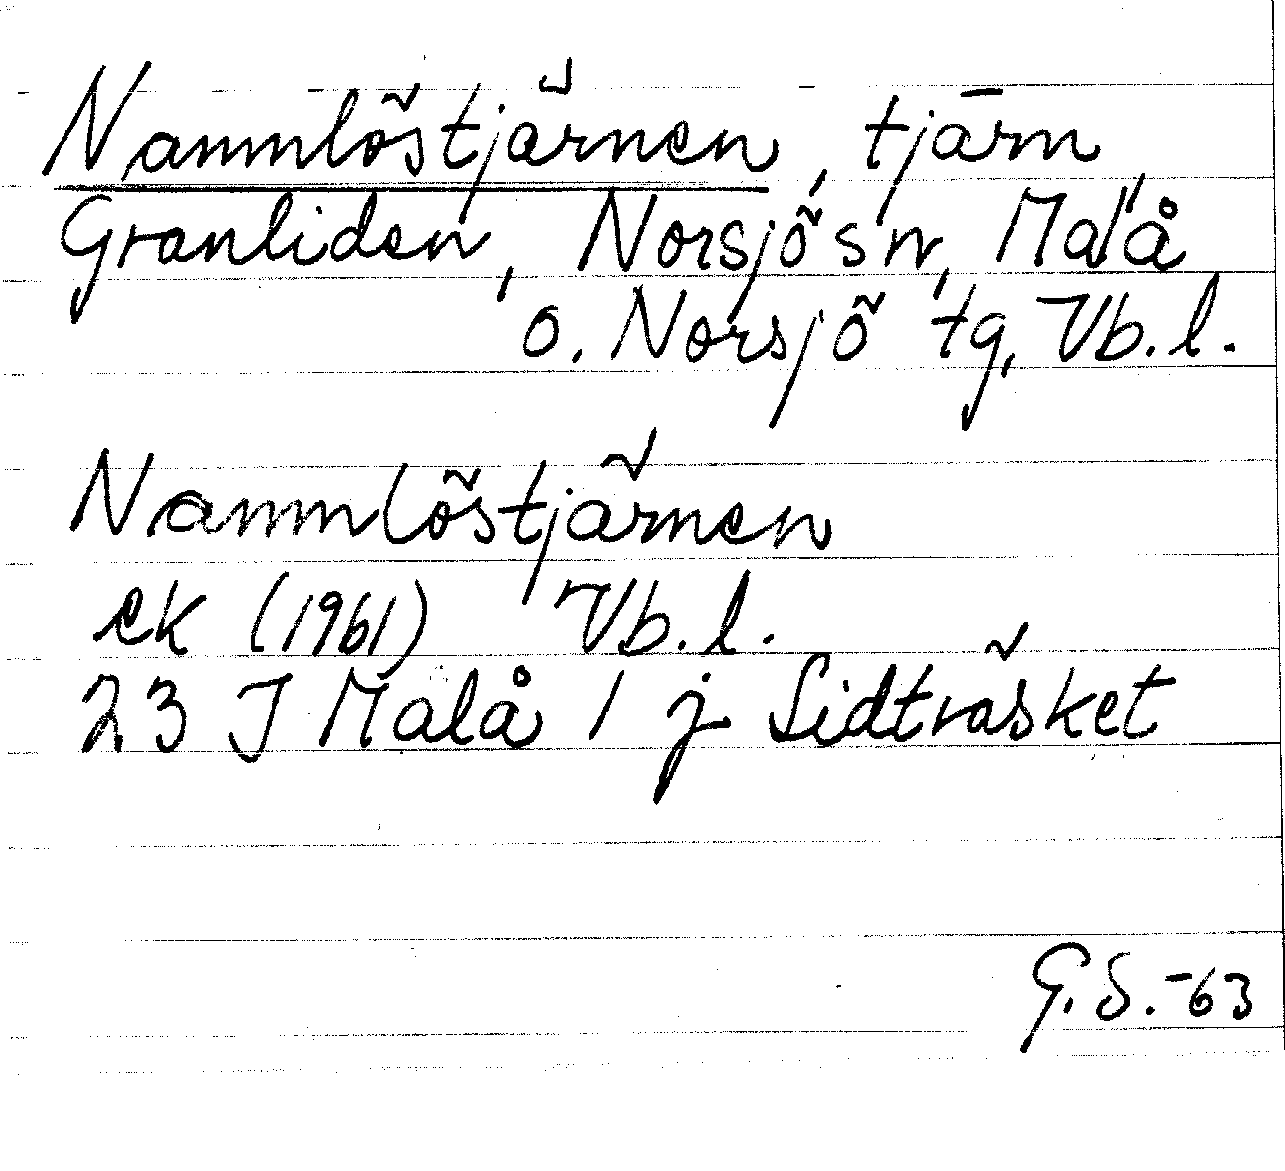 Nammlöstjärnen, tjärn,
Granliden, Norsjö sn, Malå
o. Norsjö tg, Vb. l.
Nammlöstjärnen
ek (1961) Vb. l.
23 J Malå 1 j Lidträsket
G. S. -63